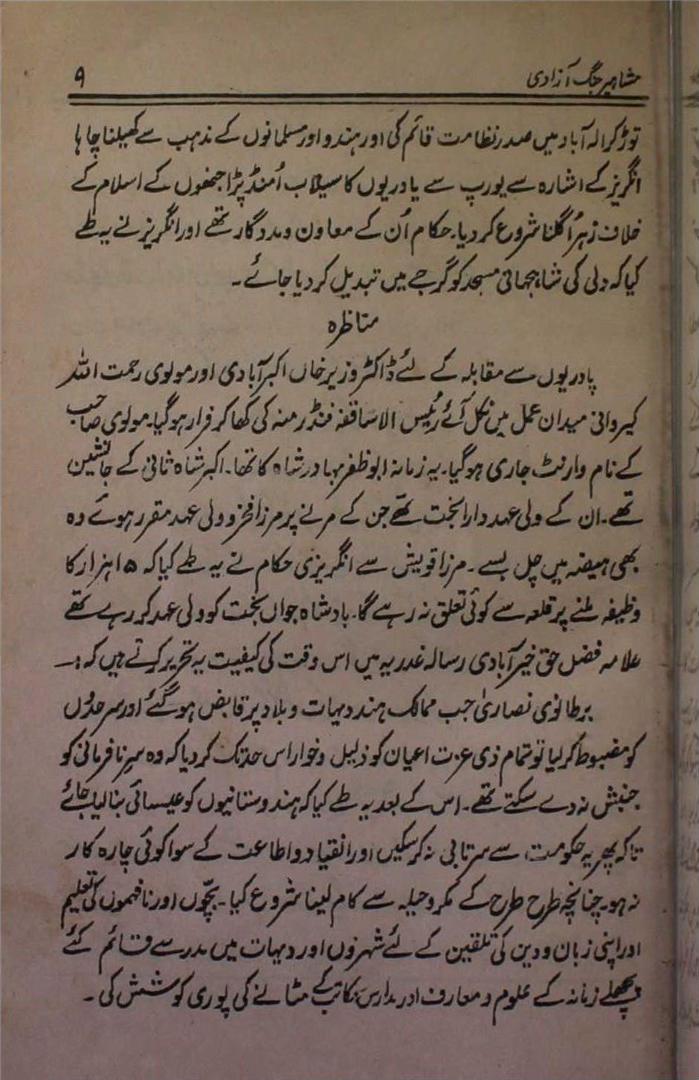 مشاہیر جنگ آزادی
۹
توڑ کر الہ آباد میں صدر نظامت قائم کی اور ہندو اور مسلمانوں کے مذہب سے کھیلنا چاہا
انگریز کے اشارہ سے یورپ سے پادریوں کا سیلاب اُمنڈ پڑا جنھوں نے اسلام کے
خلاف زہر اُگلنا شروع کر دیا۔ حکام اُن کے معاون و مددگار تھے اور انگریز نے یہ طے
کیا کہ دلی کی شاہجہانی مسجد کو گرجے میں تبدیل کر دیا جائے۔
مناظرہ
پادریوں سے مقابلہ کے لئے ڈاکٹر وزیر خاں اکبر آبادی اور مولوی رحمت اللہ
کیروانی میدان عمل میں نکل آئے رئیس الاساقفہ فنڈر منہ کی کھا کر فرار ہو گیا۔ مولوی صاحب
کے نام وارنٹ جاری ہو گیا۔ یہ زمانہ ابو ظفر بہادر شاہ کا تھا۔ اکبر شاہ ثانی کے جانشین
تھے۔ ان کے ولی عہد دارا بخت تھے جن کے مرنے پر مرزا فخرو ولی عہد مقرر ہوئے وہ
بھی ہیضہ میں چل بسے۔ مرزا قویش سے انگریزی حکام نے یہ طے کیا کہ ۱۵ ہزار کا
وظیفہ ملنے پر قلعہ سے کوئی تعلق نہ رہے گا۔ بادشاہ جواں بخت کو ولی عہد کر رہے تھے
علامہ فضل حق خیر آبادی رسالہ غدریہ میں اس وقت کی کیفیت یہ تحریر کرتے ہیں کہ:۔
برطانوی نصاریٰ جب ممالک ہند دیہات و بلاد پر قابض ہو گئے اور سرحدوں
کو مضبوط کر لیا تو تمام ذی عزت اعیان کو ذلیل و خوار اس حد تک کر دیا کہ وہ سر نافرمانی کو
جنبش نہ دے سکتے تھے۔ اس کے بعد یہ طے کیا کہ ہندوستانیوں کو عیسائی بنا لیا جائے
تاکہ پھر یہ حکومت سے سرتابی نہ کر سکیں اور انقیاد و اطاعت کے سوا کوئی چارہ کار
نہ ہو۔ چنانچہ طرح طرح کے مکر و حیلہ سے کام لینا شروع کیا۔ بچّوں اور نافہموں کی تعلیم
اور اپنی زبان و دین کی تلقین کے لئے شہروں اور دیہات میں مدرسے قائم کئے
پچھلے زمانہ کے علوم و معارف اور مدارس مکاتب کے مٹانے کی پوری کوشش کی۔